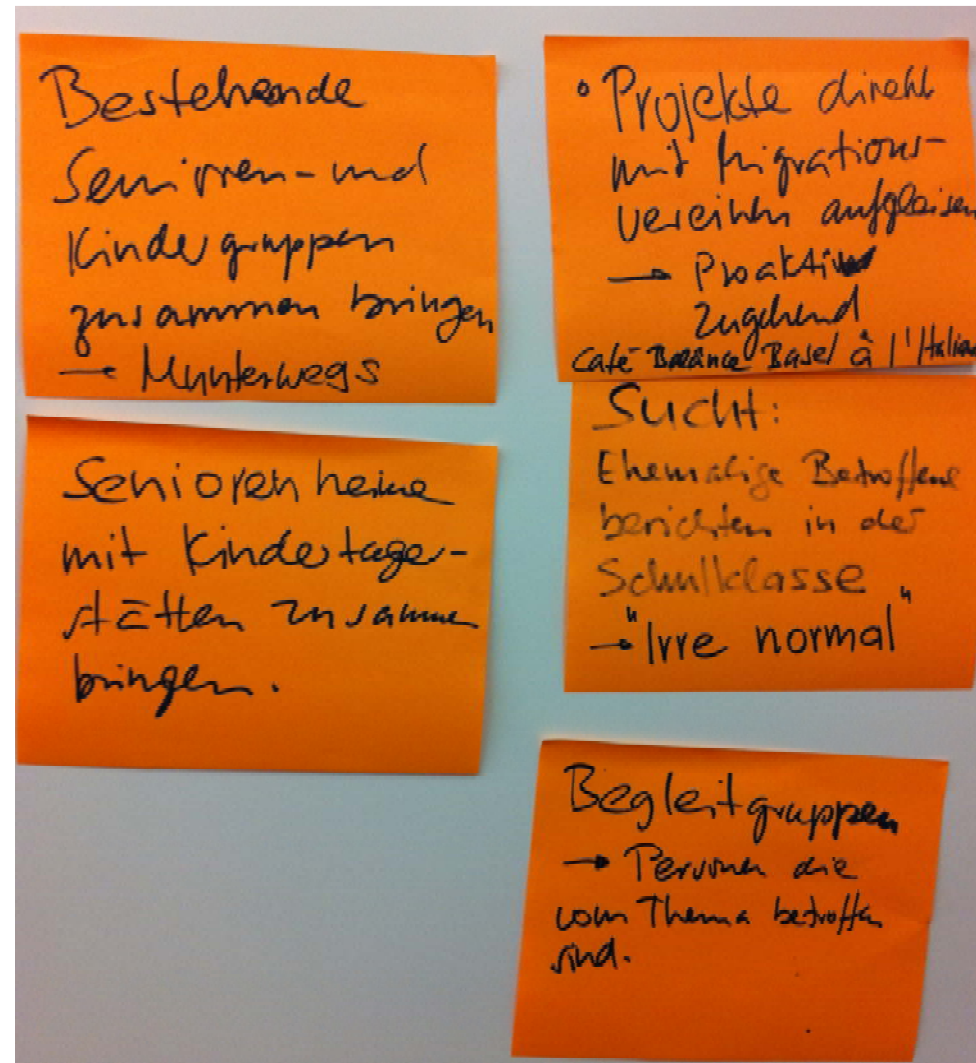 Bestehende
Senioren- und
Kindergruppen
zusammen bringen
→ Munterwegs
Seniorenheime
mit Kindertages-
stätten zusammen
bringen.
• Projekte direkt
mit Migrations-
vereinen aufgleisen
→ Proaktiv
zugehend
Café Balance Basel à l'Italia
Sucht:
Ehemalige Betroffene
berichten in der
Schulklasse
→ "Irre normal"
Begleitgruppen
→ Personen die
vom Thema betroffen
sind.